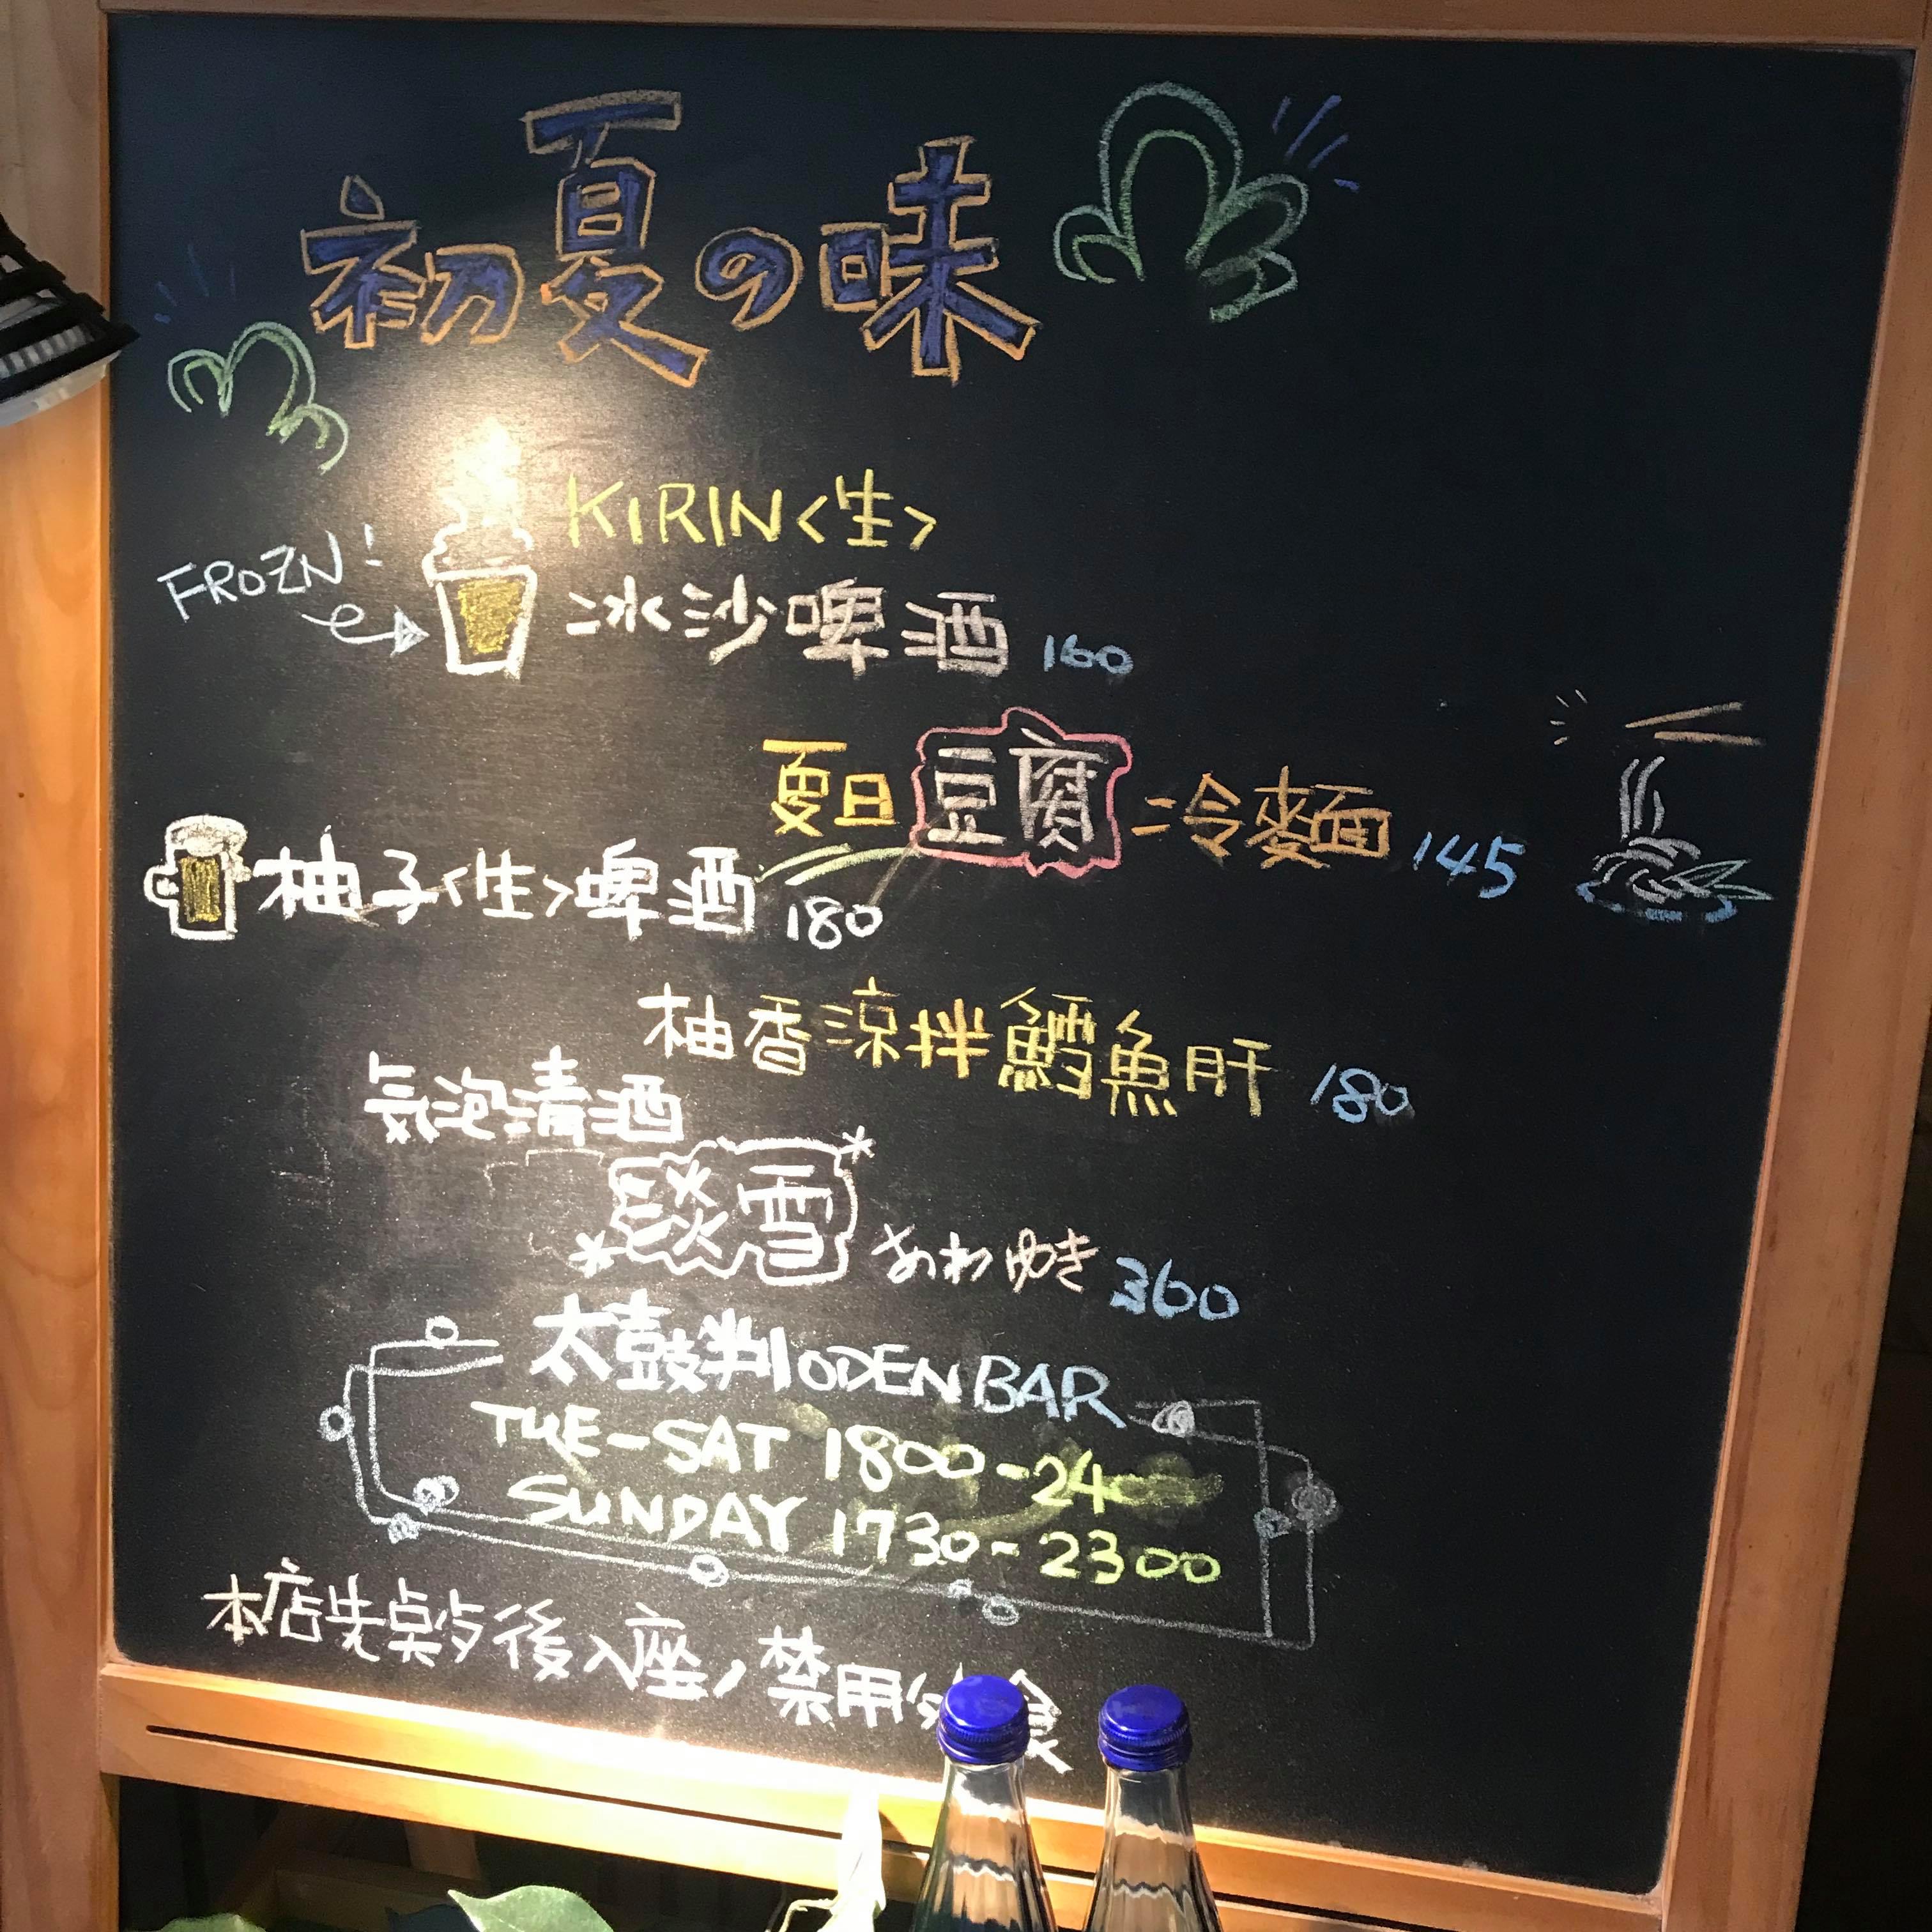 初夏の味
KIRIN<生>
FROZN!
冰沙啤酒 160
夏日豆腐冷麥面 145
柚子<生>啤酒 180
柚香涼拌鱈魚肝 180
気泡清酒
淡雪 あわゆき 360
太鼓判 ODEN BAR
TUE-SAT 1800-2400
SUNDAY 1730-2300
本店先點後入座, 禁用外食